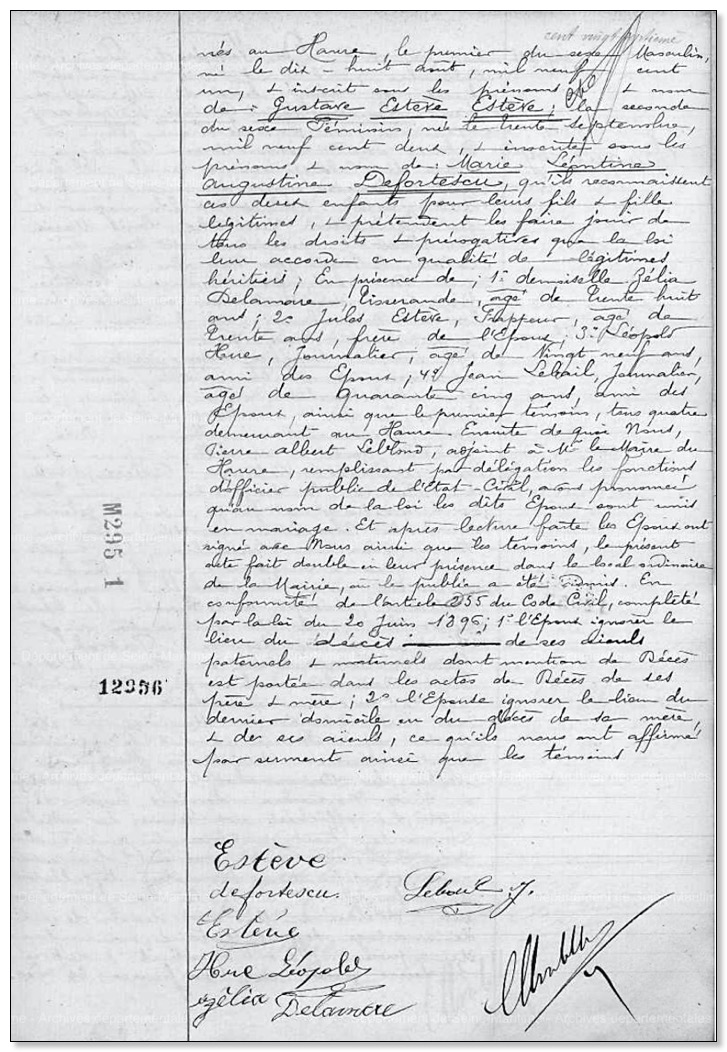 cent vingt
nés au Havre le premier du sexe Masculin,
né le dix-huit août, mil neuf cent
un, & inscrit sous les prénoms & nom
de : Gustave Estève Estève ; la seconde
du sexe Féminin, née le trente septembre,
mil neuf cent deux, & inscrite sous les
prénoms & nom de : Marie Léontine
Augustine Defortescu, qu'ils reconnaissent
ces deux enfants pour leurs fils & fille
légitimes, & prétendent les faire jouir de
tous les droits & prérogatives que la loi
leur accorde en qualité de légitimes
héritiers ; En présence de ; 1° demoiselle Zélia
Delamare, Tisserande, âgé de trente huit
ans ; 2° Jules Estève, Frappeur, âgé de
trente ans, frère de l'Epoux ; 3° Léopold
Hue, Journalier, âgé de vingt neuf ans,
ami des Epoux ; 4° Jean Lebail, Journalier,
âgé de quarante cinq ans, ami des
Epoux, ainsi que le premier témoin, tous quatre
demeurant au Havre. Ensuite de quoi Nous,
Pierre Albert Leblond, adjoint à Mr le Maire du
Havre, remplissant par délégation les fonctions
d'officier public de l'Etat-Civil, avons prononcé
qu'au nom de la loi les dits Epoux sont unis
en mariage. Et après lecture faite les Epoux ont
signé avec Nous ainsi que les témoins, le présent
acte fait double en leur présence dans le local ordinaire
de la Mairie, où le public a été admis. En
conformité de l'article 155 du Code Civil, complété
par la loi du 20 Juin 1896 ; 1° l'Epoux ignorer le
lieu du décès de ses aïeuls
paternels & maternels dont mention de Décès
est portée dans les actes de Décès de ses
père & mère ; 2° l'Epouse ignorer le lieu du
dernier domicile ou du décès de sa mère,
& de ses aïeuls, ce qu'ils nous ont affirmé
par serment ainsi que les témoins
M295 1
12956
Estève
defortescu.
J.
Estève
Hue Léopold
Zélia Delamare